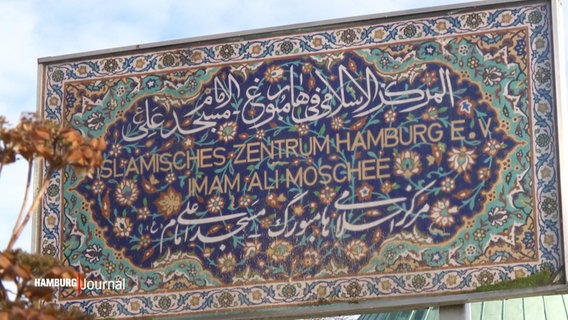 HAMBURG
Journal
المركز الاسلامي في هامبورغ
مسجد الامام علي
ISLAMISCHES ZENTRUM HAMBURG E.V.
IMAM ALI MOSCHEE
مرکز اسلامی هامبورگ
مسجد امام علی
HAMBURG Journal